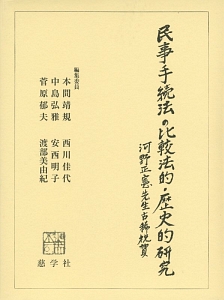 民事手続法の比較法的・歴史的研究
河野正憲先生古稀祝賀
編集委員
本間靖規
中島弘雅
菅原郁夫
西川佳代
安西明子
渡部美由紀
慈学社